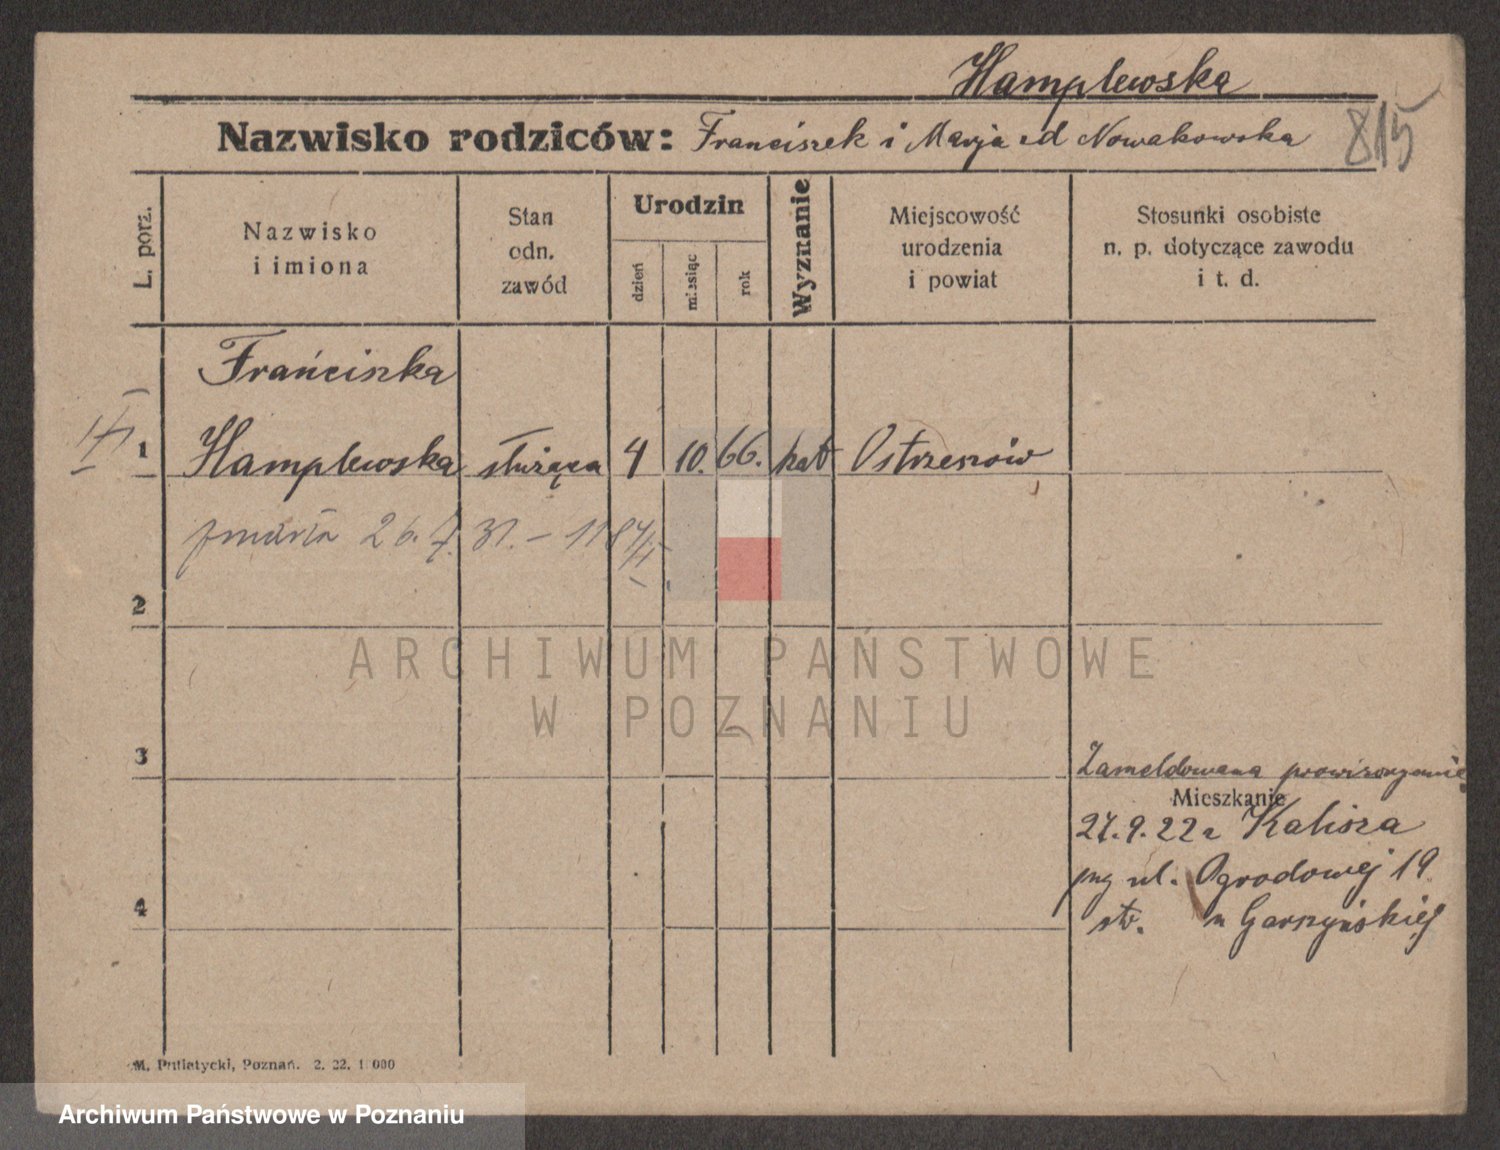 Hamplewska
Nazwisko rodziców: Franciszek i Marja ed Nowakowska
815
L. porz.
Nazwisko
i imiona
Stan
odn.
zawód
Urodzin
dzień
miesiąc
rok
Wyznanie
Miejscowość
urodzenia
i powiat
Stosunki osobiste
n. p. dotyczące zawodu
i t. d.
Franciszka
1 Hamplewska służąca 4 10. 66. kat Ostrzeszów
zmarła 26. 7. 31. –
2
ARCHIWUM PAŃSTWOWE
W POZNANIU
3
Zameldowana prowizorycznie
Mieszkanie
27.9.22 z Kalisza
ul. Ogrodowej 19
4
str. u Garszyńskiej
M. Putiatycki, Poznań. 2. 22. 1 000
Archiwum Państwowe w Poznaniu